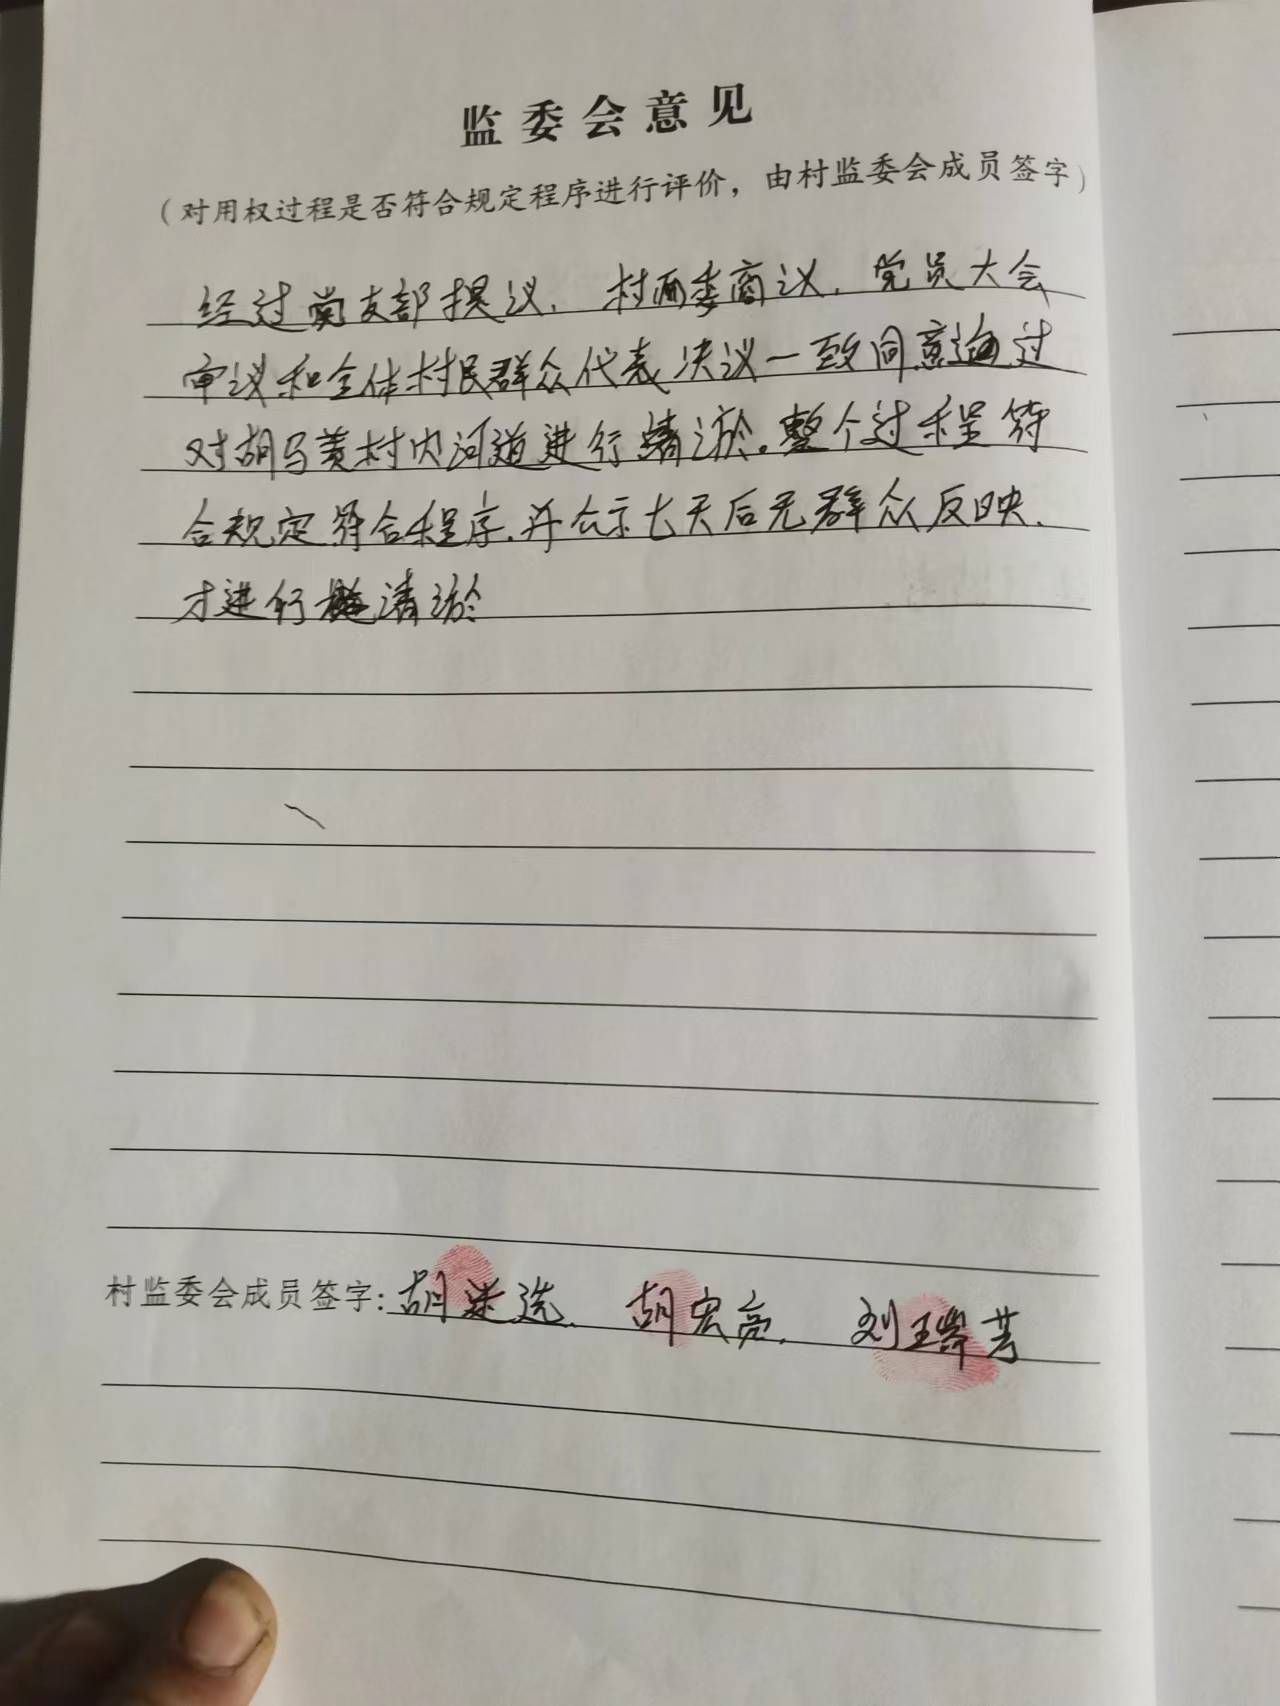 监委会意见
（对用权过程是否符合规定程序进行评价，由村监委会成员签字）
经过党支部提议，村两委商议，党员大会
审议和全体村民群众代表决议一致同意通过
对胡马 村内河道进行清淤。整个过程符
合规定符合程序，并公示七天后无群众反映，
才进行 清淤
村监委会成员签字：胡 选、胡宏亮，刘瑞芳